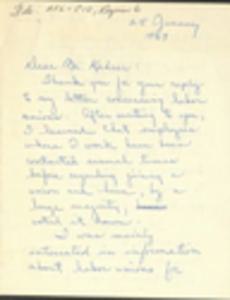 File: AFL-CIO, Region 6
28 January
1969
Dear Mr.
Thank you for your reply
to my letter concerning labor
unions. After writing to you,
I learned that employees
where I work have been
contacted several times
before regarding joining a
union and have, by a
large majority,
voted it down.
I was mainly
interested in information
about labor unions for